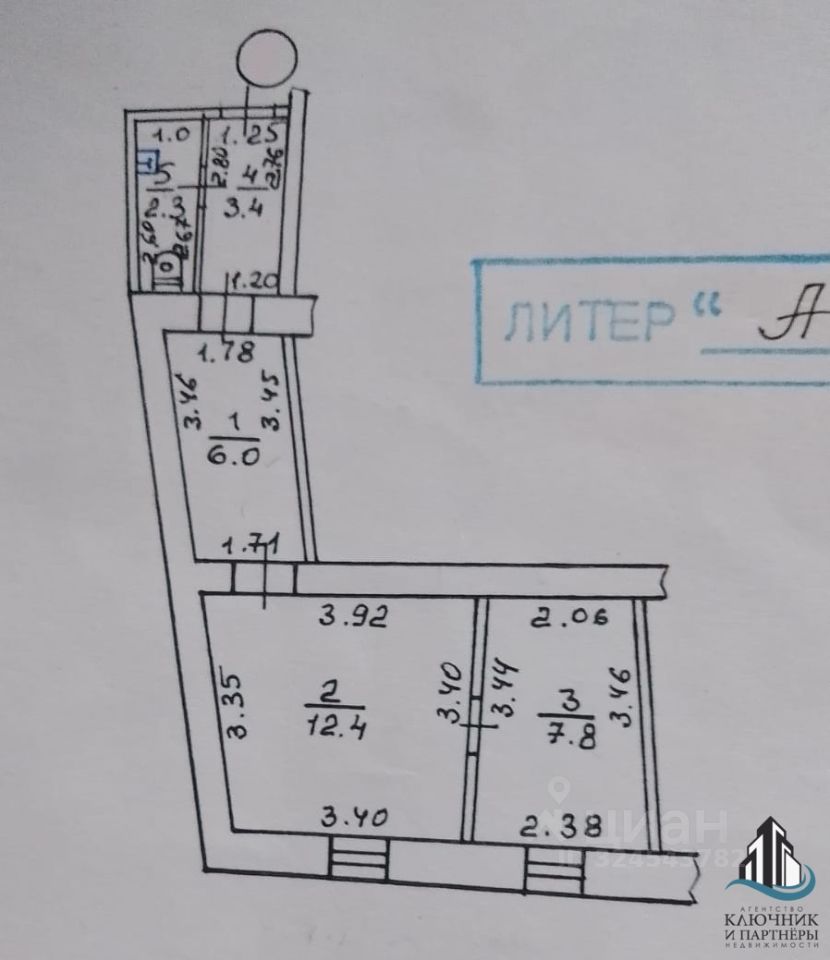 1.0
1.25
2.80
2.76
5
4
3.4
2.60
2.67
1.20
ЛИТЕР " А
1.78
3.46
3.45
1
6.0
1.71
3.92
2.06
3.35
2
12.4
3.40
3.44
3
7.8
3.46
3.40
2.38
циан
ID 324545782
АГЕНТСТВО
КЛЮЧНИК
И ПАРТНЁРЫ
НЕДВИЖИМОСТИ